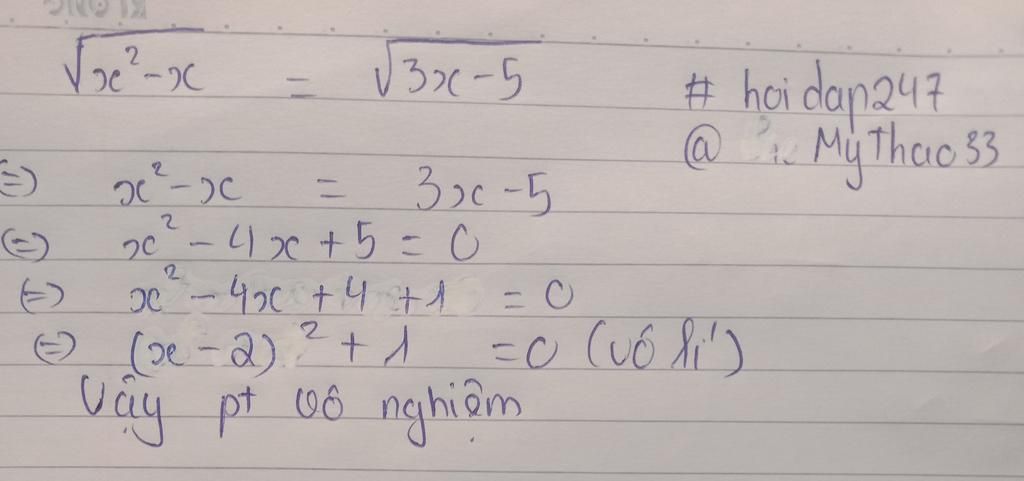 √x² - x = √3x - 5
# hoidap247
@ MyThao33
=> x² - x = 3x - 5
<=> x² - 4x + 5 = 0
<=> x² - 4x + 4 + 1 = 0
<=> (x - 2)² + 1 = 0 (vô lí)
Vậy pt vô nghiệm